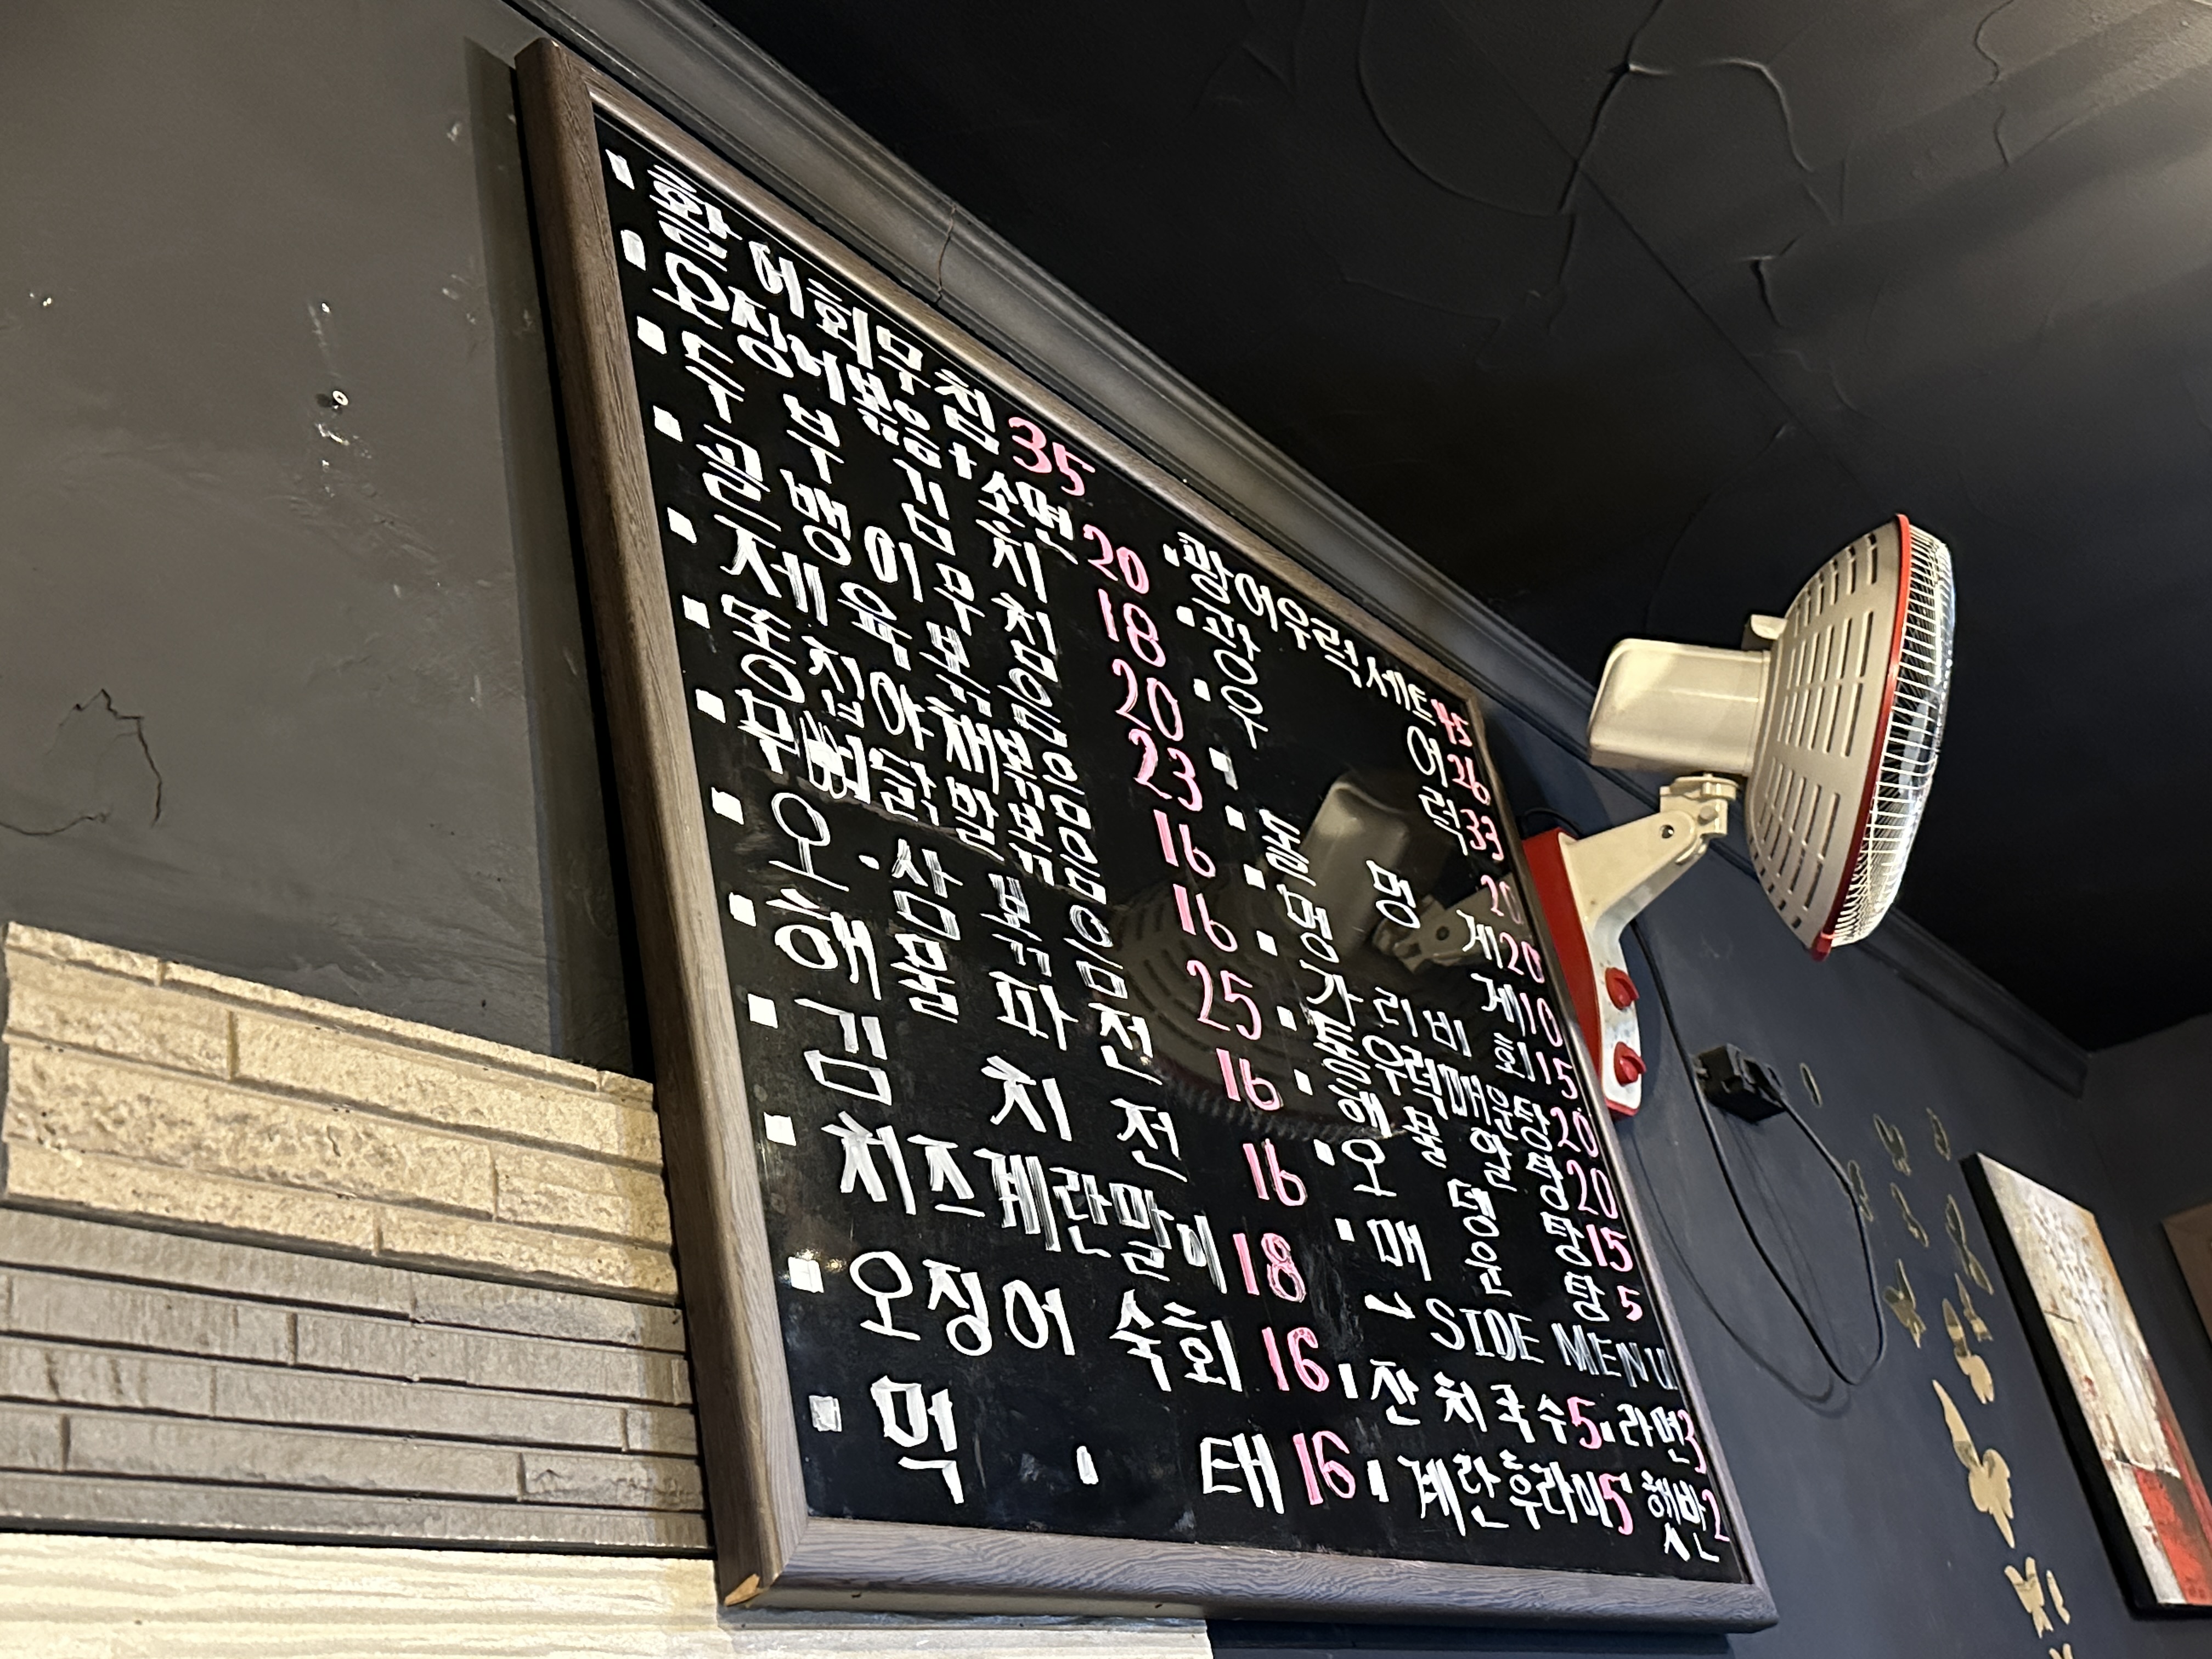 활어회무침 35
오징어볶음+소면 20
두부김치 18
골뱅이무침 20
제육볶음 23
똥집야채볶음 16
무뼈닭발볶음 16
오.삼볶음 25
해물파전 16
김치전 16
치즈계란말이 18
오징어숙회 16
먹태 16
광어우럭세트 45
광어 26
우럭 33
20
돌멍게 20
멍게 10
가리비찜 15
통우럭매운탕 20
해물알탕 20
오뎅탕 15
매운탕 5
~ SIDE MENU
잔치국수 5 라면 3
계란후라이 5 햇반 2